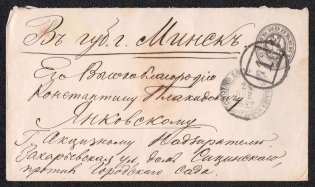 Въ губ. г. Минскъ
Его Высокоблагородію
Константину Плакидовичу
Янковскому
Г. Акцизному Надзирателю.
Захарьевская ул., домъ Сацинскаго,
противъ Городскаго Сада.